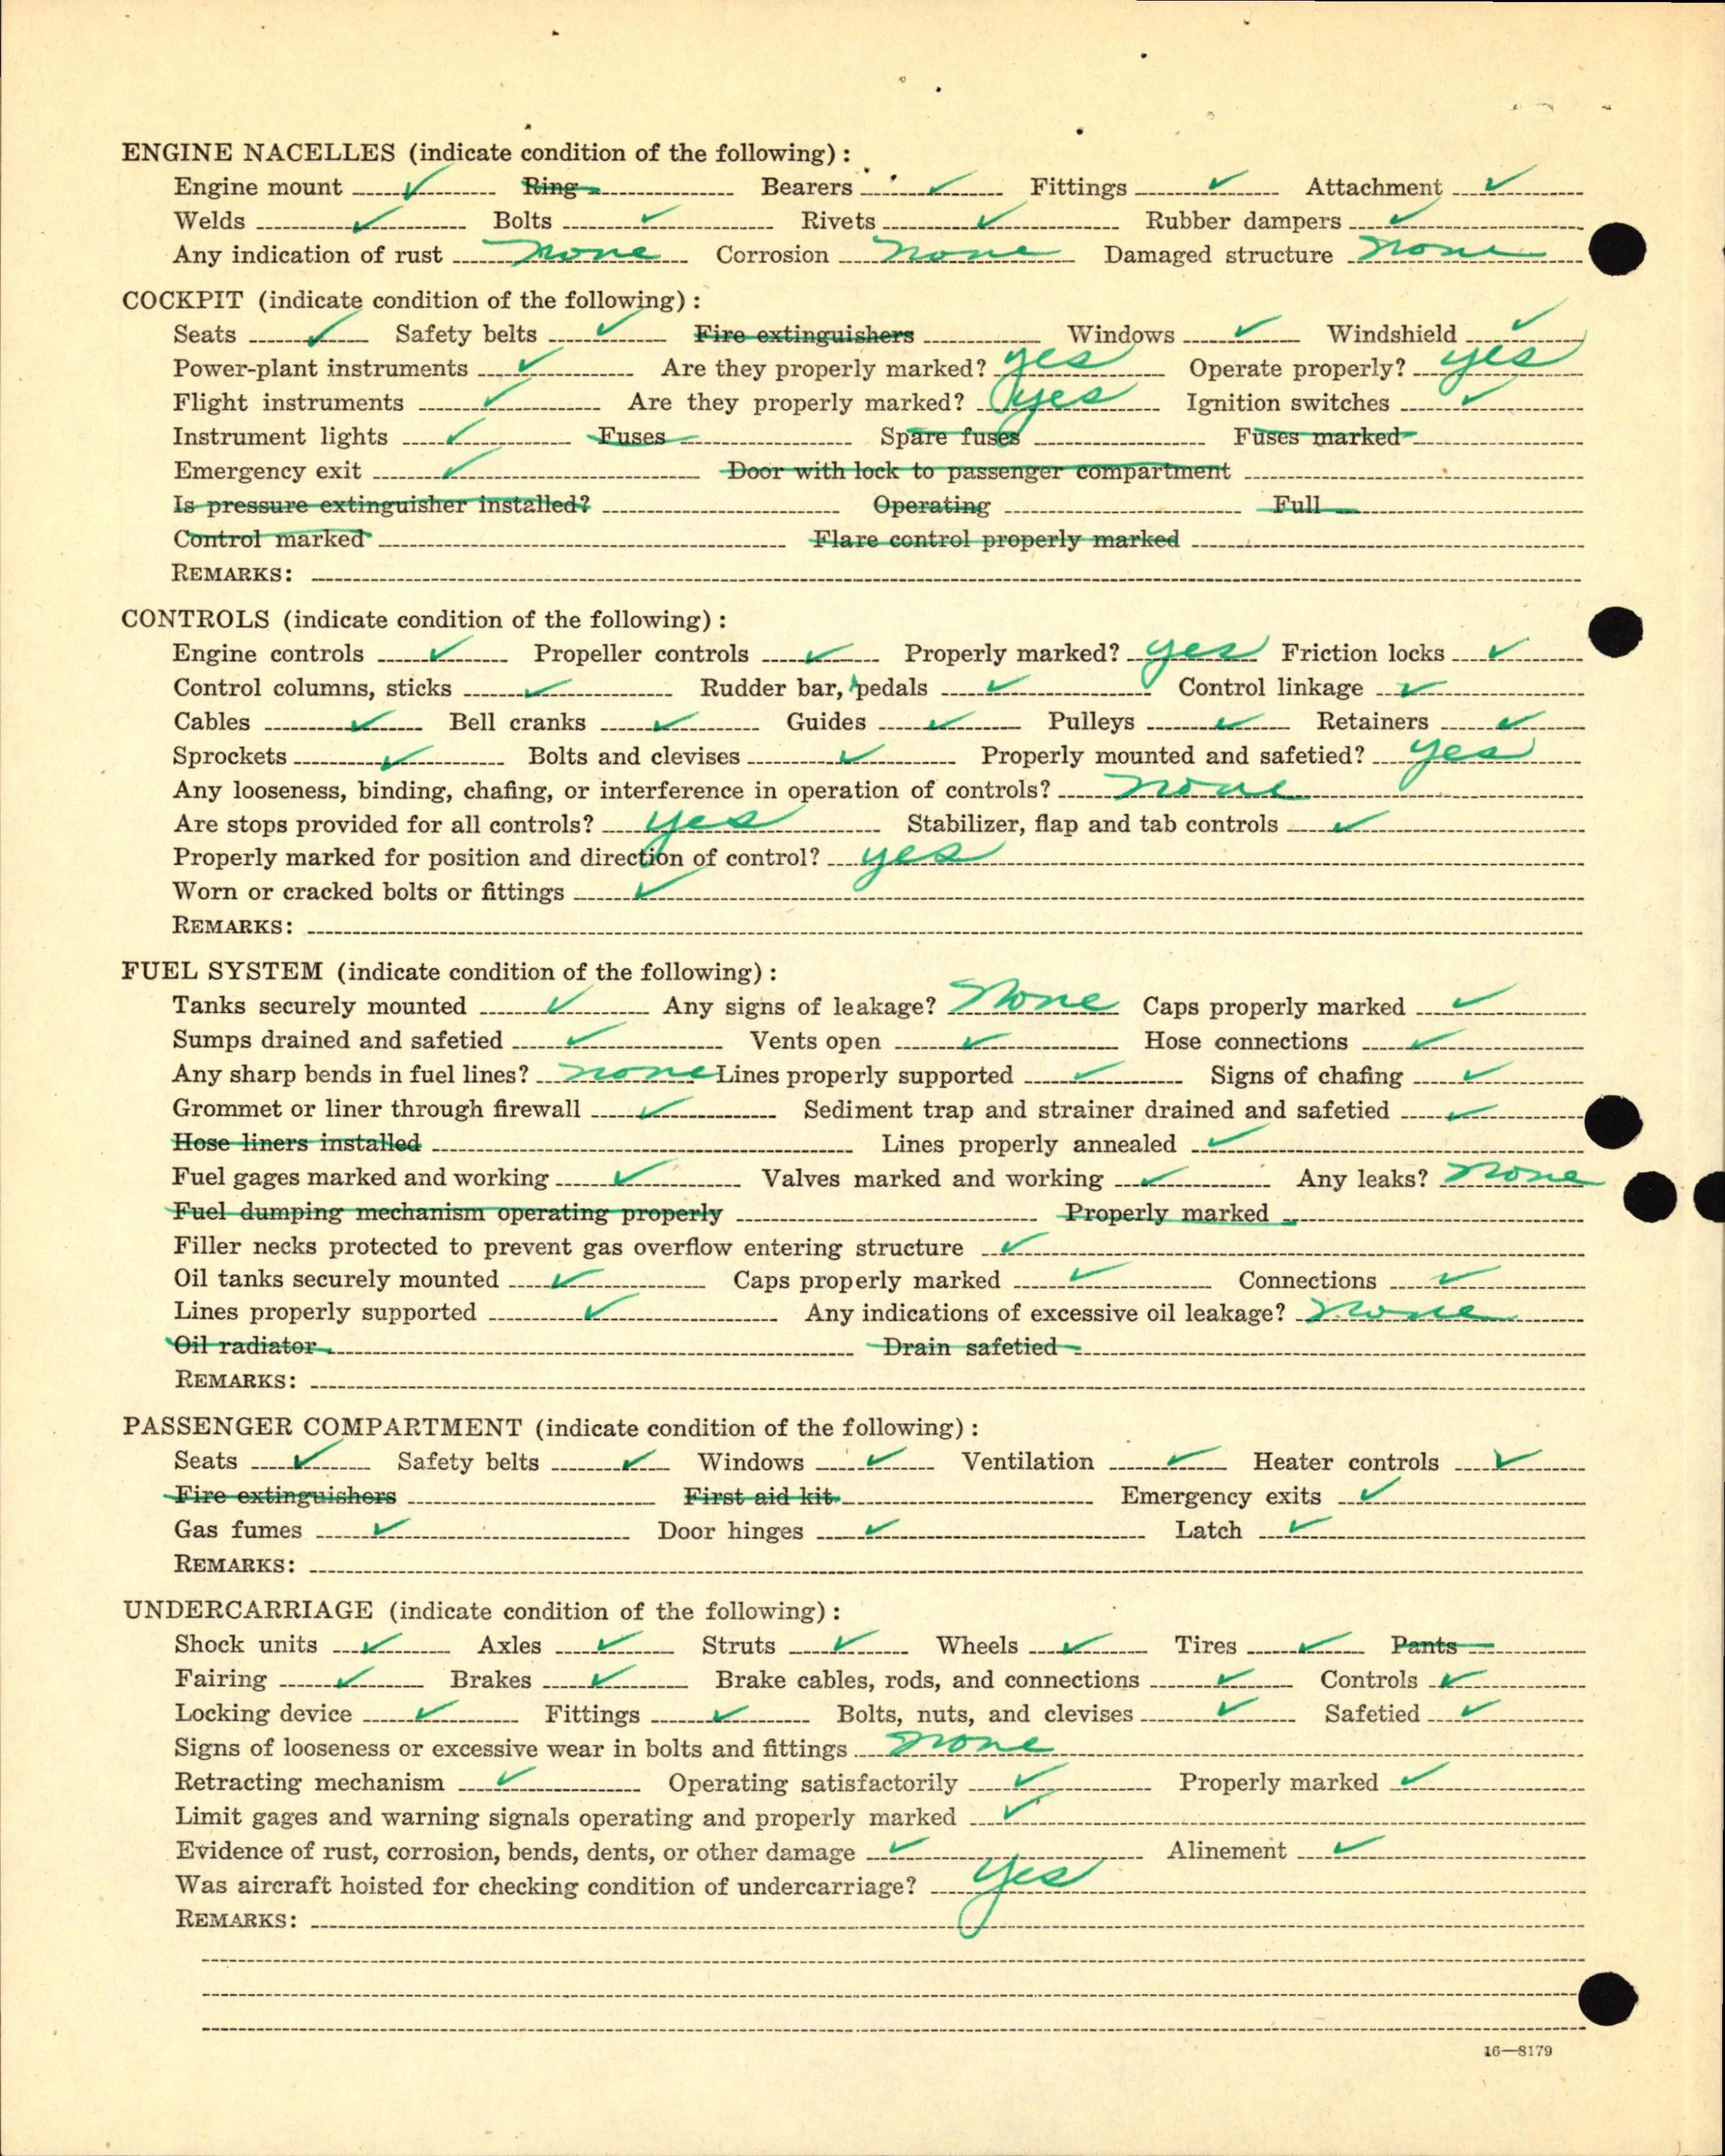 ENGINE NACELLES (indicate condition of the following):
Engine mount ✓ Ring Bearers ✓ Fittings ✓ Attachment ✓
Welds ✓ Bolts ✓ Rivets ✓ Rubber dampers ✓
Any indication of rust none Corrosion none Damaged structure none
COCKPIT (indicate condition of the following):
Seats ✓ Safety belts ✓ Fire extinguishers Windows ✓ Windshield ✓
Power-plant instruments ✓ Are they properly marked? yes Operate properly? yes
Flight instruments ✓ Are they properly marked? yes Ignition switches ✓
Instrument lights ✓ Fuses Spare fuses Fuses marked
Emergency exit ✓ Door with lock to passenger compartment
Is pressure extinguisher installed? Operating Full
Control marked Flare control properly marked
REMARKS:
CONTROLS (indicate condition of the following):
Engine controls ✓ Propeller controls ✓ Properly marked? yes Friction locks ✓
Control columns, sticks ✓ Rudder bar, pedals ✓ Control linkage ✓
Cables ✓ Bell cranks ✓ Guides ✓ Pulleys ✓ Retainers ✓
Sprockets ✓ Bolts and clevises ✓ Properly mounted and safetied? yes
Any looseness, binding, chafing, or interference in operation of controls? none
Are stops provided for all controls? yes Stabilizer, flap and tab controls ✓
Properly marked for position and direction of control? yes
Worn or cracked bolts or fittings ✓
REMARKS:
FUEL SYSTEM (indicate condition of the following):
Tanks securely mounted ✓ Any signs of leakage? None Caps properly marked ✓
Sumps drained and safetied ✓ Vents open ✓ Hose connections ✓
Any sharp bends in fuel lines? none Lines properly supported ✓ Signs of chafing ✓
Grommet or liner through firewall ✓ Sediment trap and strainer drained and safetied ✓
Hose liners installed Lines properly annealed ✓
Fuel gages marked and working ✓ Valves marked and working ✓ Any leaks? None
Fuel dumping mechanism operating properly Properly marked
Filler necks protected to prevent gas overflow entering structure ✓
Oil tanks securely mounted ✓ Caps properly marked ✓ Connections ✓
Lines properly supported ✓ Any indications of excessive oil leakage? None
Oil radiator Drain safetied
REMARKS:
PASSENGER COMPARTMENT (indicate condition of the following):
Seats ✓ Safety belts ✓ Windows ✓ Ventilation ✓ Heater controls ✓
Fire extinguishers First aid kit Emergency exits ✓
Gas fumes ✓ Door hinges ✓ Latch ✓
REMARKS:
UNDERCARRIAGE (indicate condition of the following):
Shock units ✓ Axles ✓ Struts ✓ Wheels ✓ Tires ✓ Pants
Fairing ✓ Brakes ✓ Brake cables, rods, and connections ✓ Controls ✓
Locking device ✓ Fittings ✓ Bolts, nuts, and clevises ✓ Safetied ✓
Signs of looseness or excessive wear in bolts and fittings none
Retracting mechanism ✓ Operating satisfactorily ✓ Properly marked ✓
Limit gages and warning signals operating and properly marked ✓
Evidence of rust, corrosion, bends, dents, or other damage ✓ Alinement ✓
Was aircraft hoisted for checking condition of undercarriage? yes
REMARKS:
16—8179